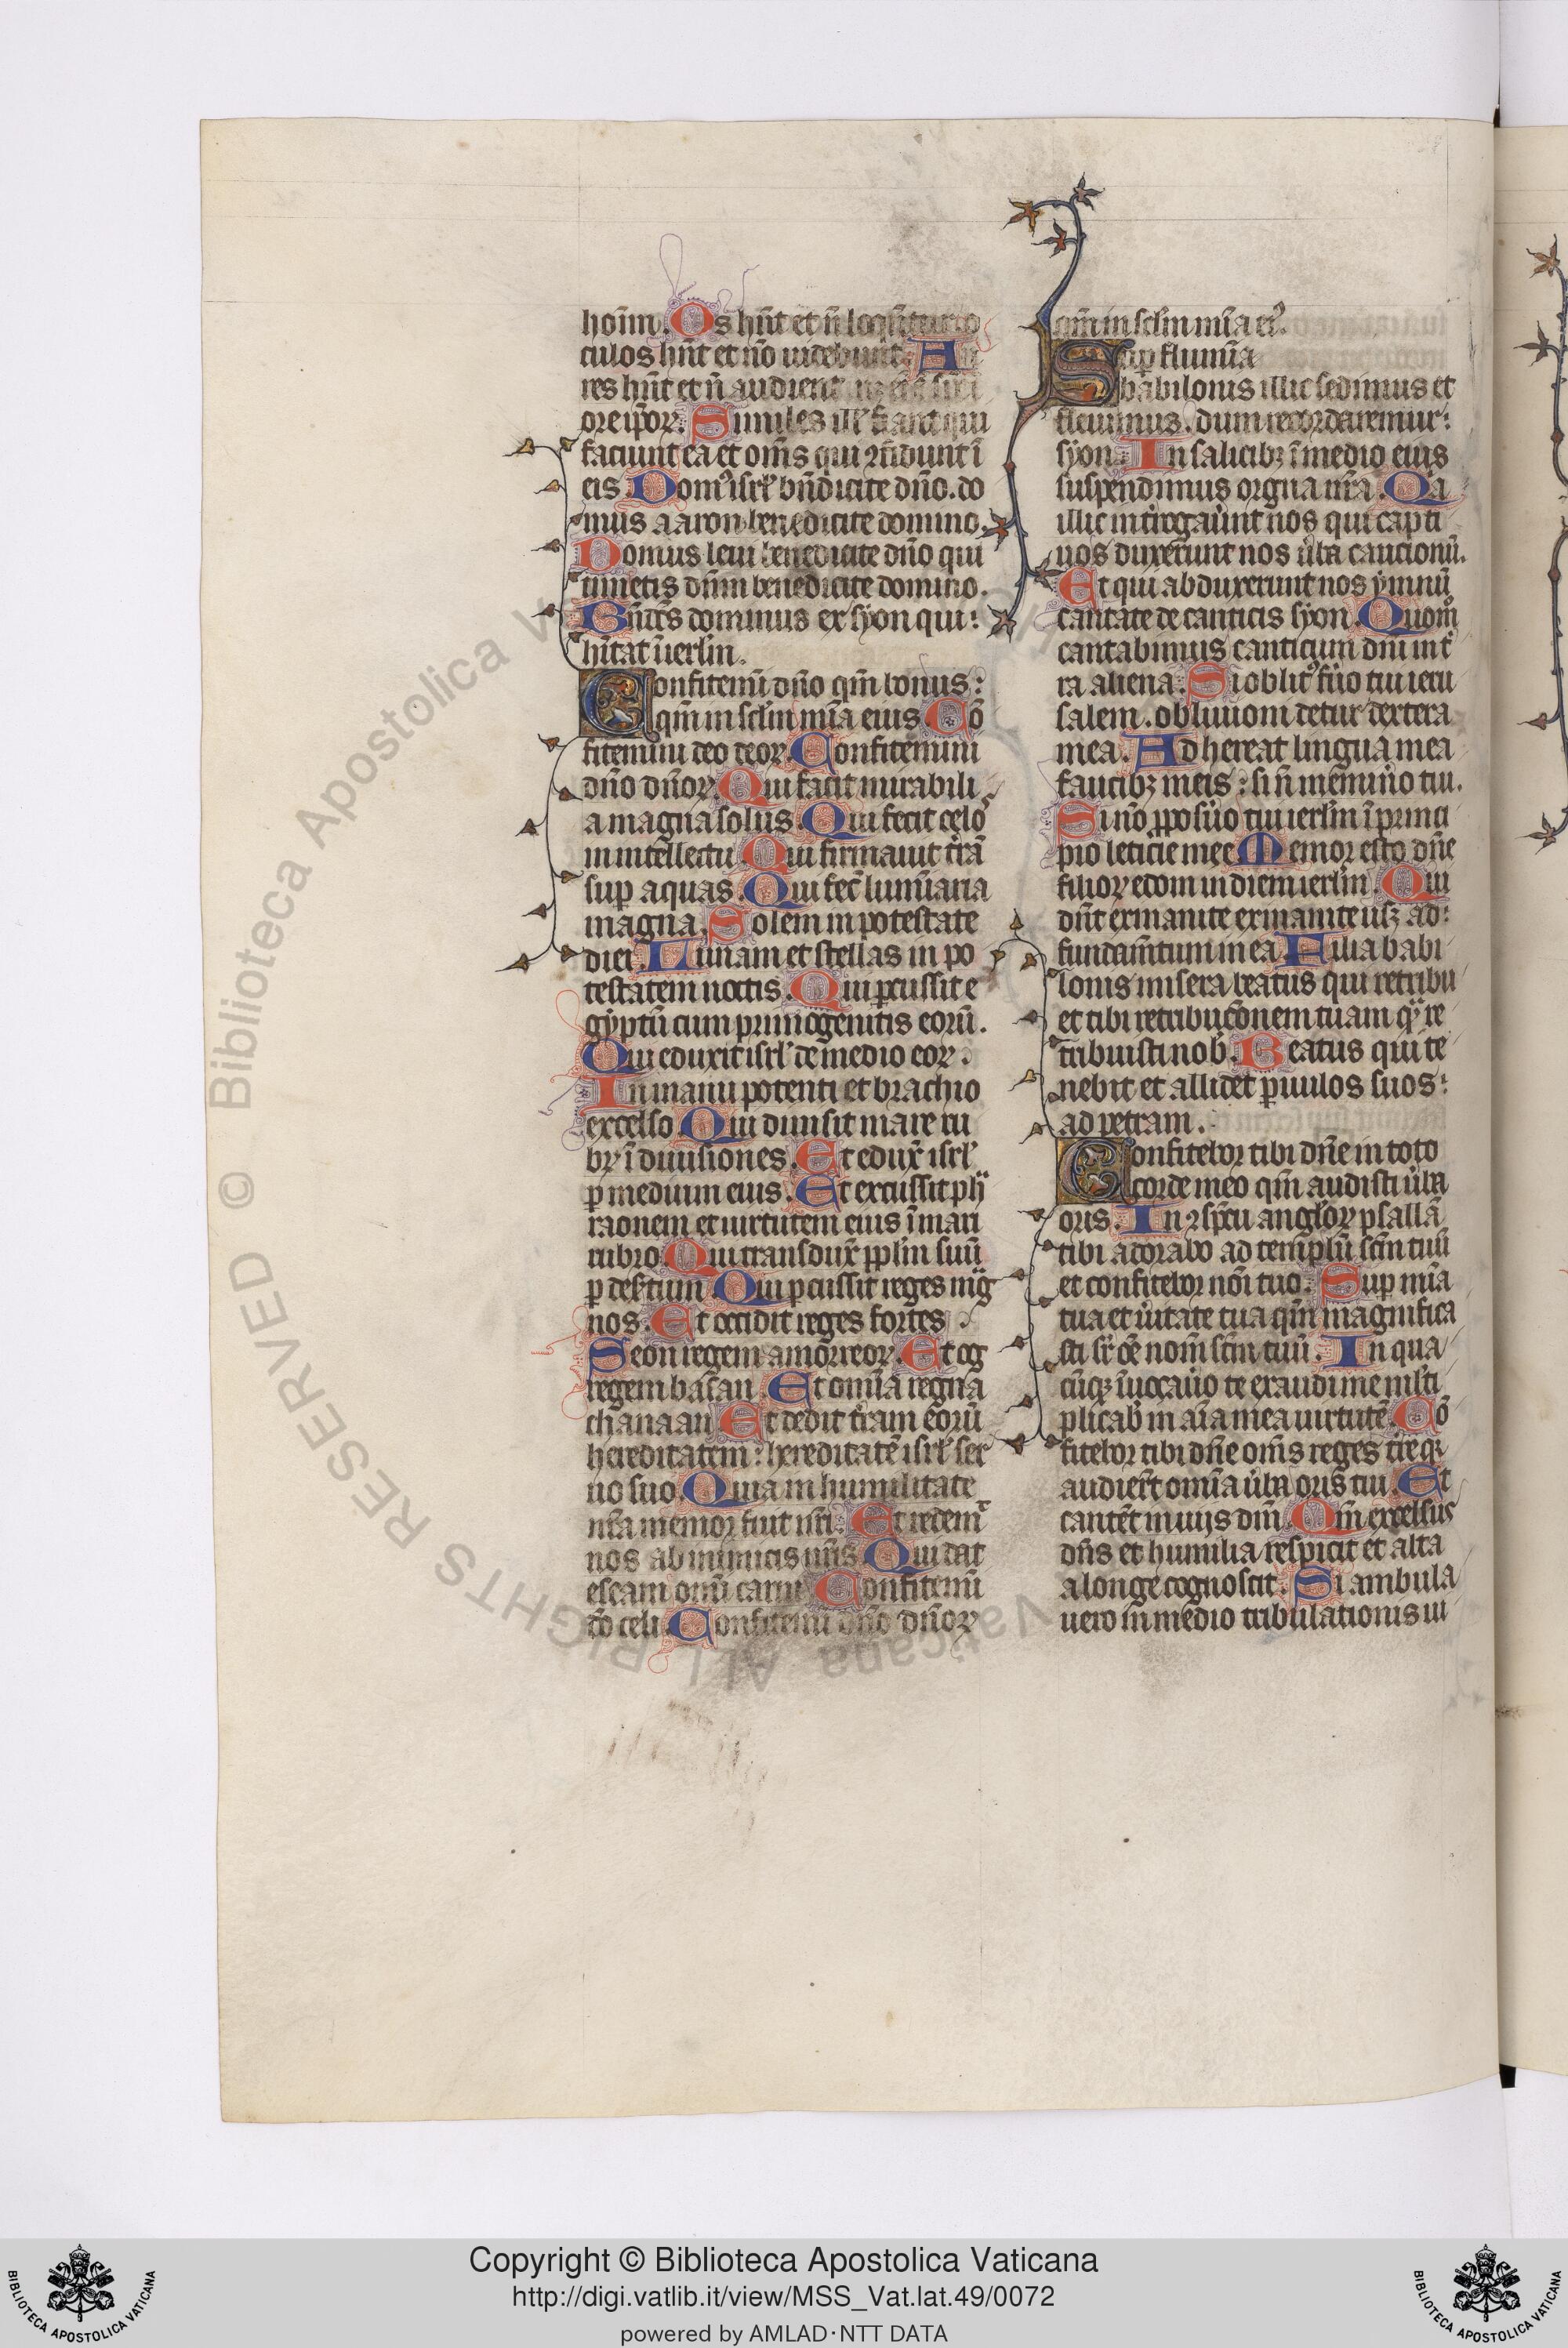 hoīm. Os hn̄t et n̄ loqn̄tur: o
culos hn̄t et nō uidebunt. Au
res hn̄t et n̄ audient
ore ip̄oꝝ. Similes ill' fiant qui
faciunt ea et om̄s qui ꝯfidunt ī
eis. Domꝰ isrl' bn̄dicite dn̄o. do
mus aaron benedicite domino.
Domus leui benedicite dn̄o qui
timetis dn̄m benedicite domino.
Bn̄dc̄s dominus ex syon qui:
hītat ī ierl̄m.
Confitemī dn̄o qm̄ bonus:
qm̄ in sc̄lm mīa eius. Cō
fitemini deo deoꝝ. Confitemini
dn̄o dn̄oꝝ. Qui facit mirabili
a magna solus. Qui fecit celoˢ
in intellectu. Qui firmauit tr̄ā
sup̄ aquas. Qui fec̄ lumīaria
magna. Solem in potestate
diei. Lunam et stellas in po
testatem noctis. Qui ꝑcussit e
gyptū cum primogenitis eorū.
Qui eduxit isrl' de medio eoꝝ.
In manu potenti et brachio
excelso. Qui diuisit mare ru
bꝝ ī diuisiones. Et edux̄ isrl'
ꝑ medium eius. Et excussit pħ
raonem et uirtutem eius ī mari
rubro. Qui transdux̄ pp̄lm suū
ꝑ des̄tum. Qui ꝑcussit reges mg̈
nos. Et occidit reges fortes
Seon regem amorreoꝝ. Et og
regem basan. Et omīa regna
chanaan. Et dedit tr̄am eorū
hereditatem: hereditatē isrl' ser
uo suo. Quia in humilitate
nr̄a memor fuit nr̄i. Et redem̄
nos ab inimicis nr̄is. Qui dat
escam om̄i carni. Confitemī
dō celi. Confitemī dn̄o dn̄oꝝ
qm̄ in sc̄lm mīa eiꝰ.
Sup̄ flumīa
babilonis illic sedimus et
fleuimus. dum recordaremur:
syon. In salicibꝫ ī medio eius
suspendimus orgna nr̄a. Qi̾a
illic int̾rogaūnt nos qui capti
uos duxerunt nos ūba cancionū.
Et qui abduxerunt nos ymnū
cantate de canticis syon. Quom̊
cantabimus canticum dn̄i in t̾
ra aliena. Si oblitꝰ fūo tui ieru
salem. obliuioni detur dextera
mea. Adhereat lingua mea
faucibꝫ meis: si n̄ meminō tui.
Si nō ꝓposūo tui ierl̄m ī princi
pio leticie mee. Memor esto dn̄e
filioꝝ edom in diem ierl̄m. Qui
dn̄t exinanite exinanite usꝫ ad:
fundam̄tum in ea. Filia babi
lonis misera beatus qui retribu
et tibi retribucōnem tuam qᷓ re
tribuisti nob̄. Beatus qui te
nebit et allidet ꝑuulos suos:
ad petram.
Confitebor tibi dn̄e in toto
corde meo qm̄ audisti ūba
oris. In ꝯspc̄u angl̄oꝝ psallā
tibi adorabo ad templū sc̄m tuū
et confitebor noī tuo. Sup̄ mīa
tua et ūitate tua qm̄ magnifica
sti sr̄ oē nom̄ sc̄m tuū. In qua
cūqꝫ īuocaūo te exaudi me ml̄ti
plicab̄ in aīa mea uirtutē. Cō
fitebor tibi dn̄e om̄s reges t̾re qᷓ
audier̄t omīa ūba oris tui. Et
cantēt in uijs dn̄i. Qm̄ excelsus
dn̄s et humilia respicit et alta
a longe cognoscit. Si ambula
uero in medio tribulationis ui
Copyright © Biblioteca Apostolica Vaticana
http://digi.vatlib.it/view/MSS_Vat.lat.49/0072
powered by AMLAD·NTT DATA
BIBLIOTECA APOSTOLICA VATICANA
BIBLIOTECA APOSTOLICA VATICANA
© Biblioteca Apostolica Vaticana ALL RIGHTS RESERVED